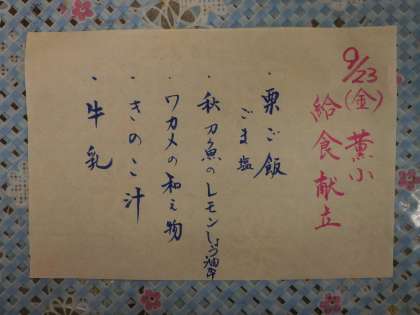 9/23(金) 薫小
給食献立
・栗ご飯
ごま塩
・秋刀魚のレモンしょう油干
・ワカメの和え物
・きのこ汁
・牛乳